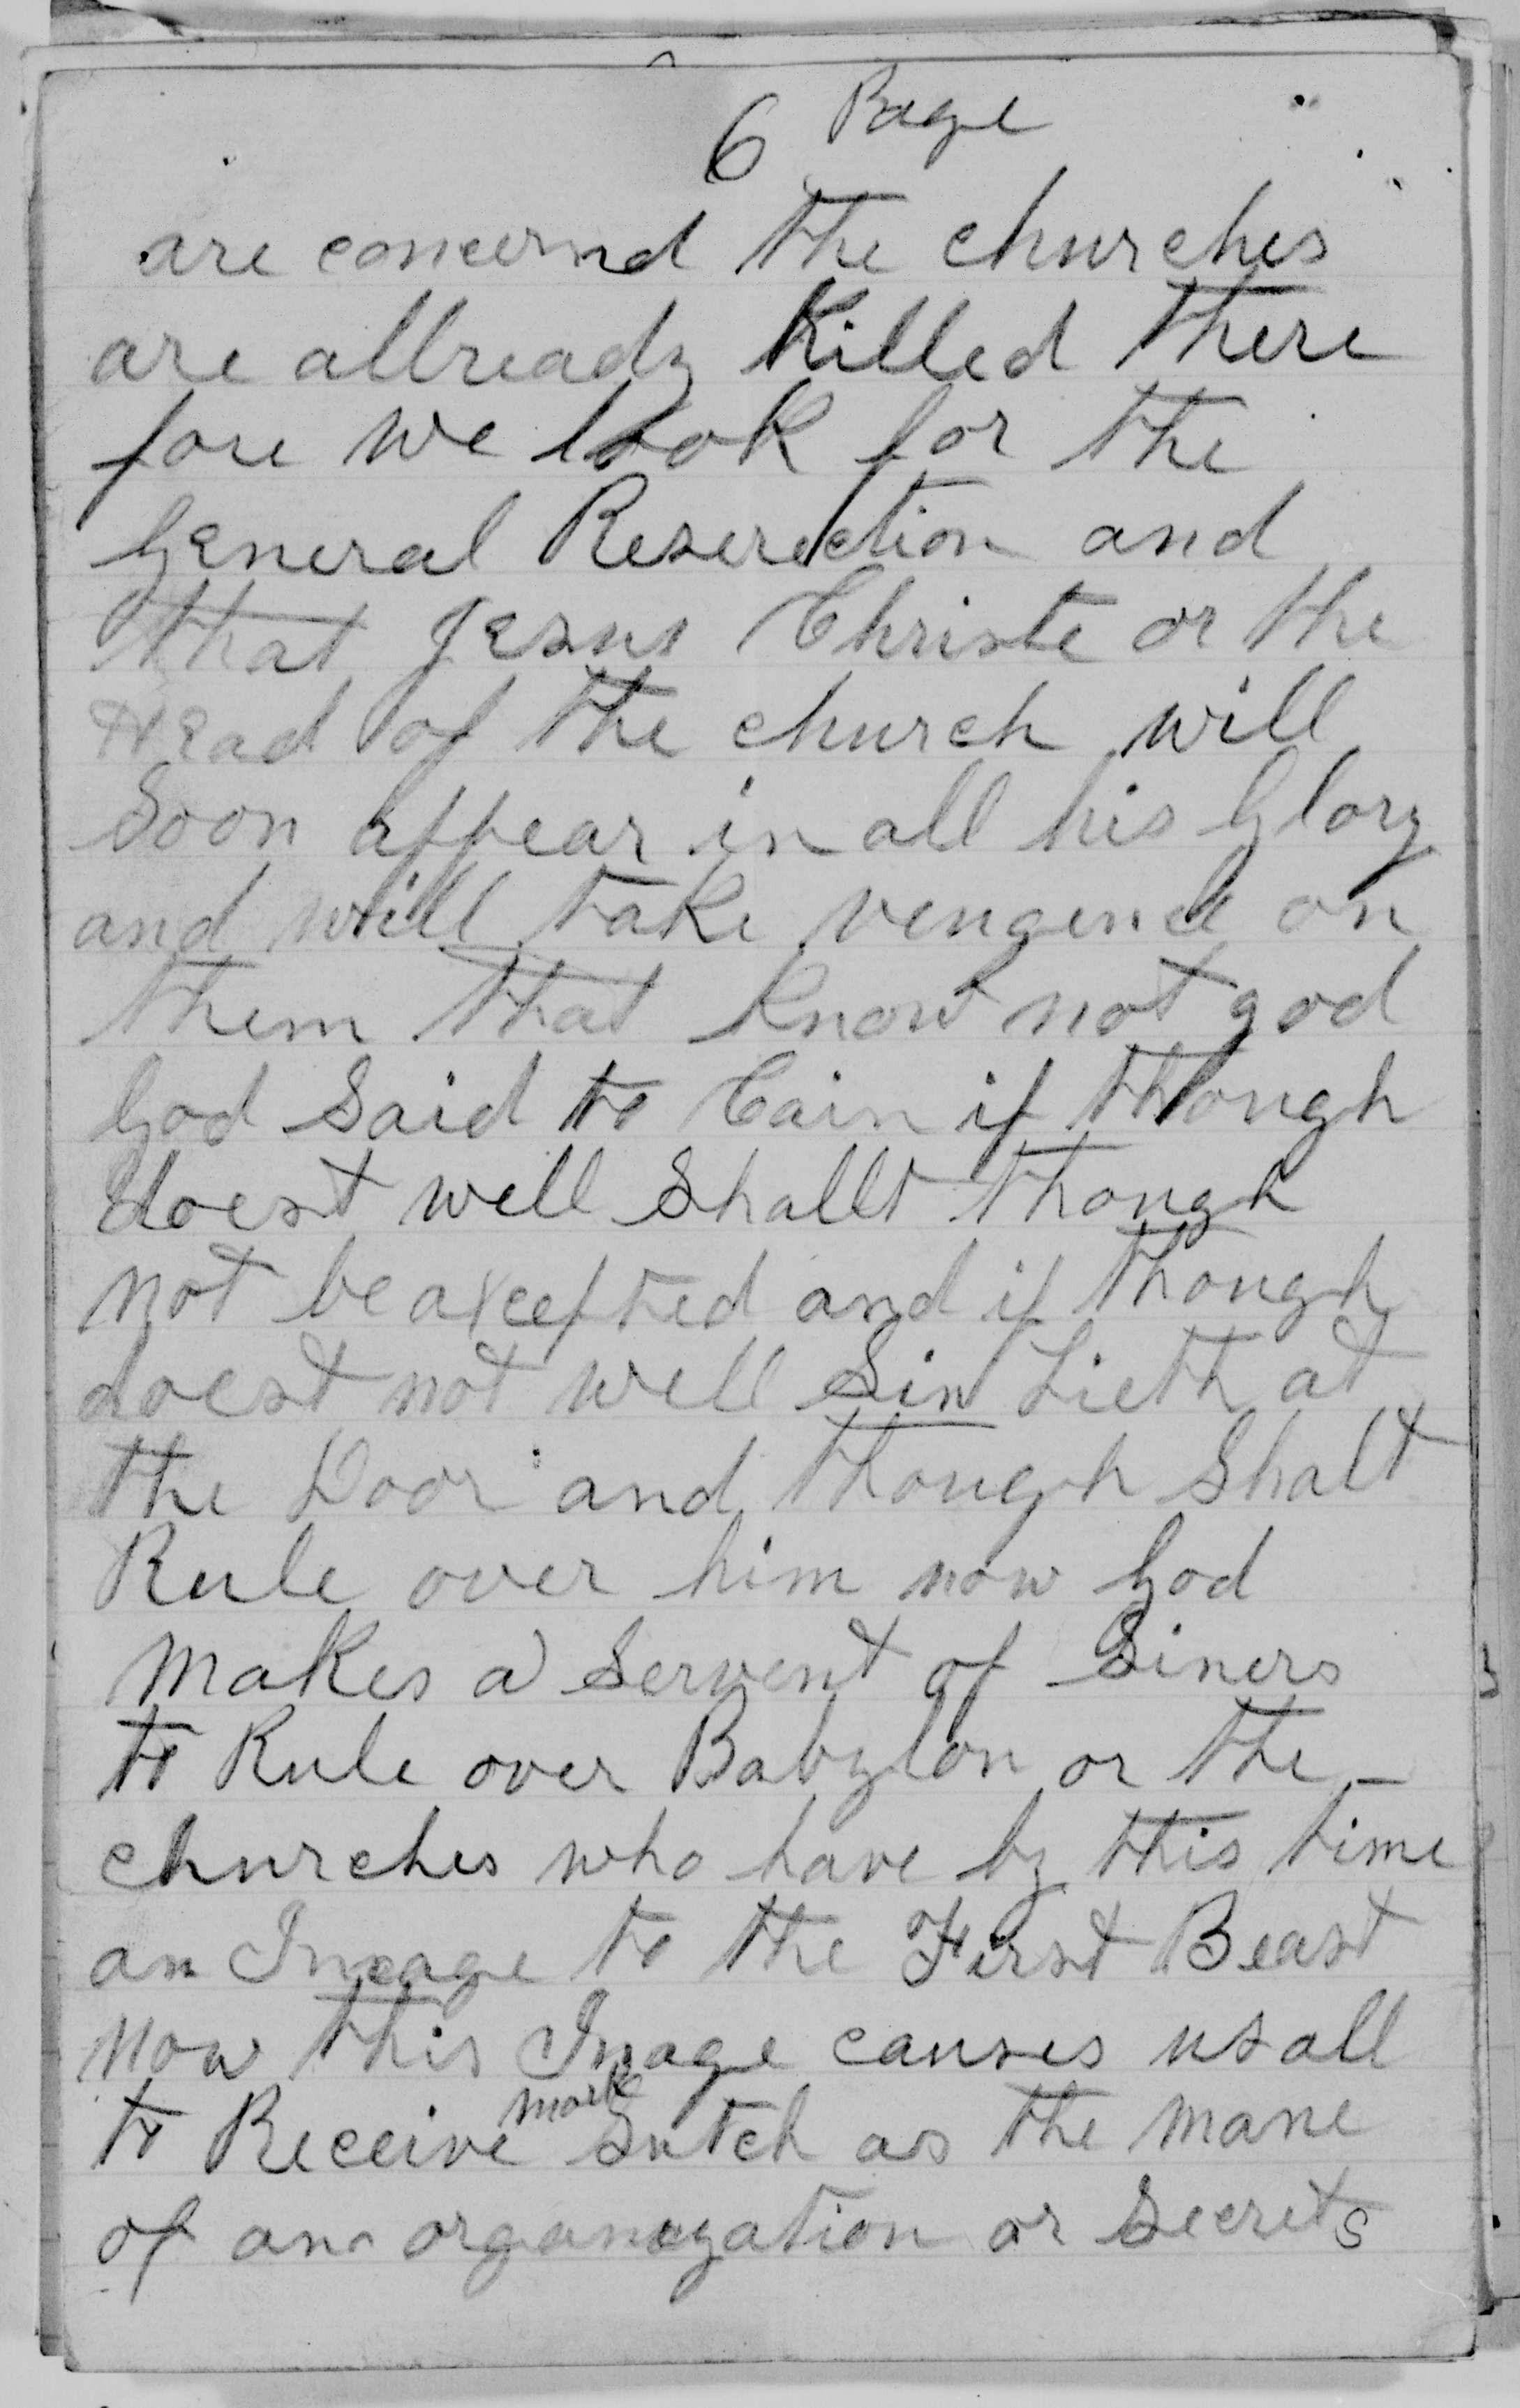 6 Page
are concernd the churches
are allready Killed there
fore we look for the
General Reserection and
that Jesus Christe or the
Head of the church will
Soon appear in all his Glory
and will take vengence on
them that Know not god
God Said to Cain if though
doest well Shallt though
not be axcepted and if though
doest not well Sin Lieth at
the Door and though Shalt
Rule over him now God
makes a Servent of Siners
to Rule over Babylon or the
churches who have by this time
an Image to the First Beast
now this Image causes us all
to Receive mark Sutch as the mane
of an organazation or Secrets